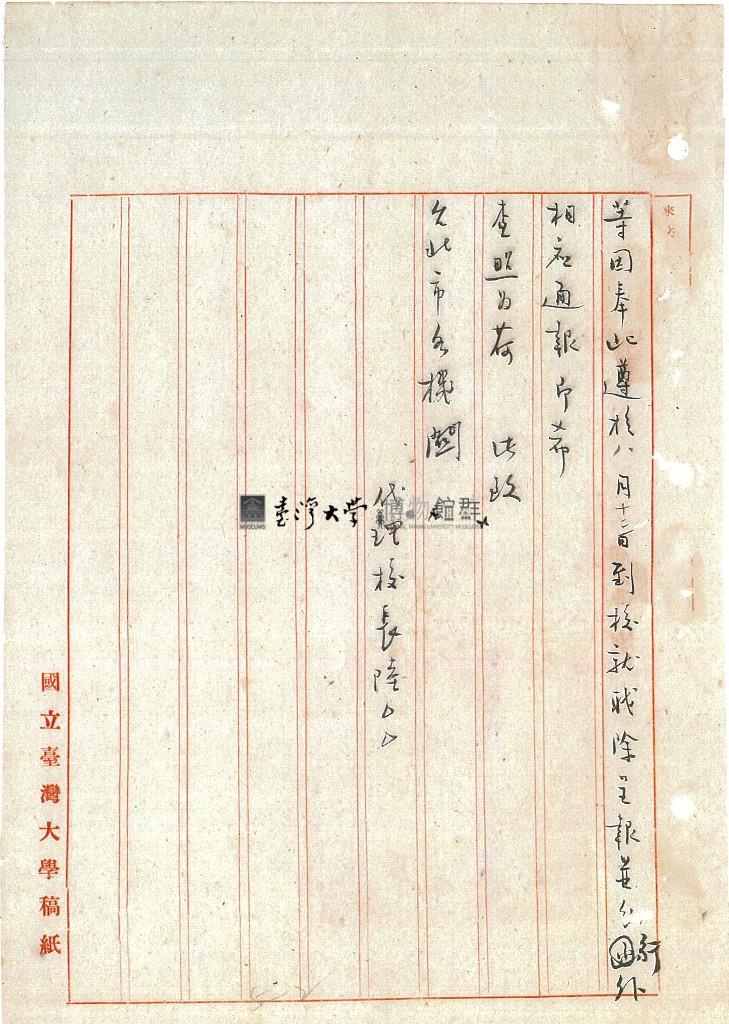 來文
等因奉此遵於八月十三日到校就職除呈報並分行外
相應通報即希
查照為荷 此致
台北市各機關
代理校長陸△△
國立臺灣大學稿紙
臺灣大學 博物館群
MUSEUMS